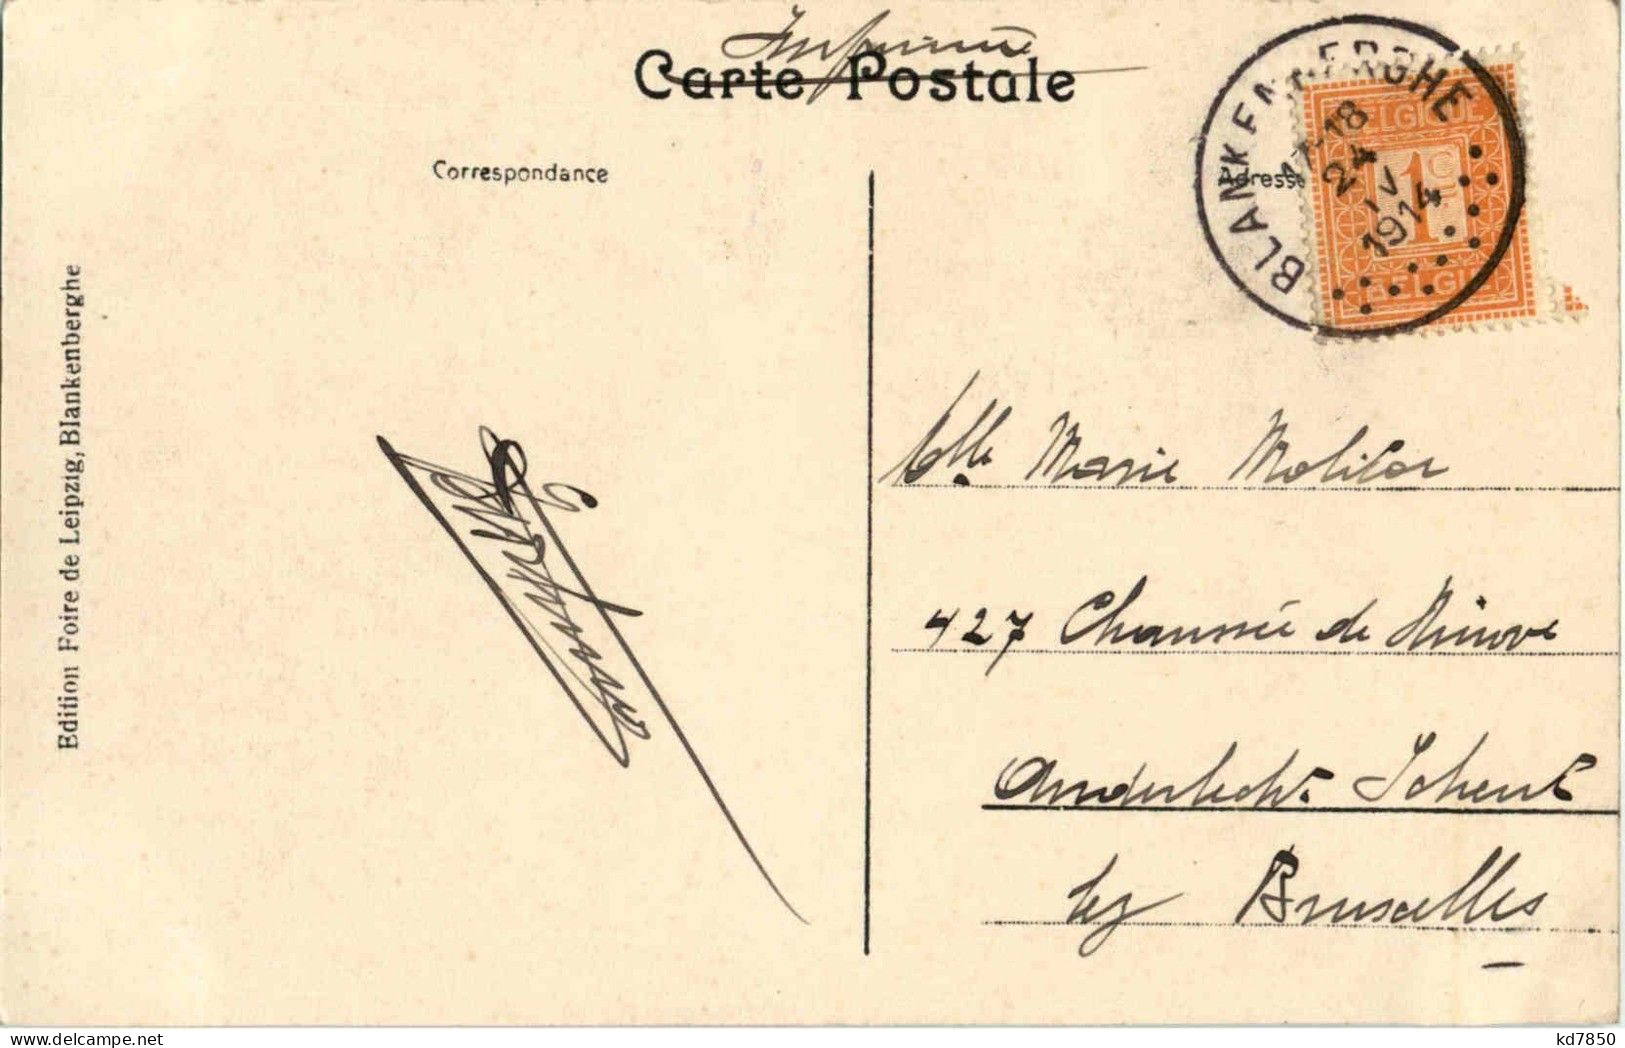 Imprimé
Carte Postale
Correspondance
Adresse
BLANKENBERGHE
17-18
24
IV
1914
BELGIQUE
1
BELGIË
Edition Foire de Leipzig, Blankenberghe
Mlle Marie Molitor
427 Chaussée de Ninove
Anderlecht Scheut
lez Bruxelles
kd7850